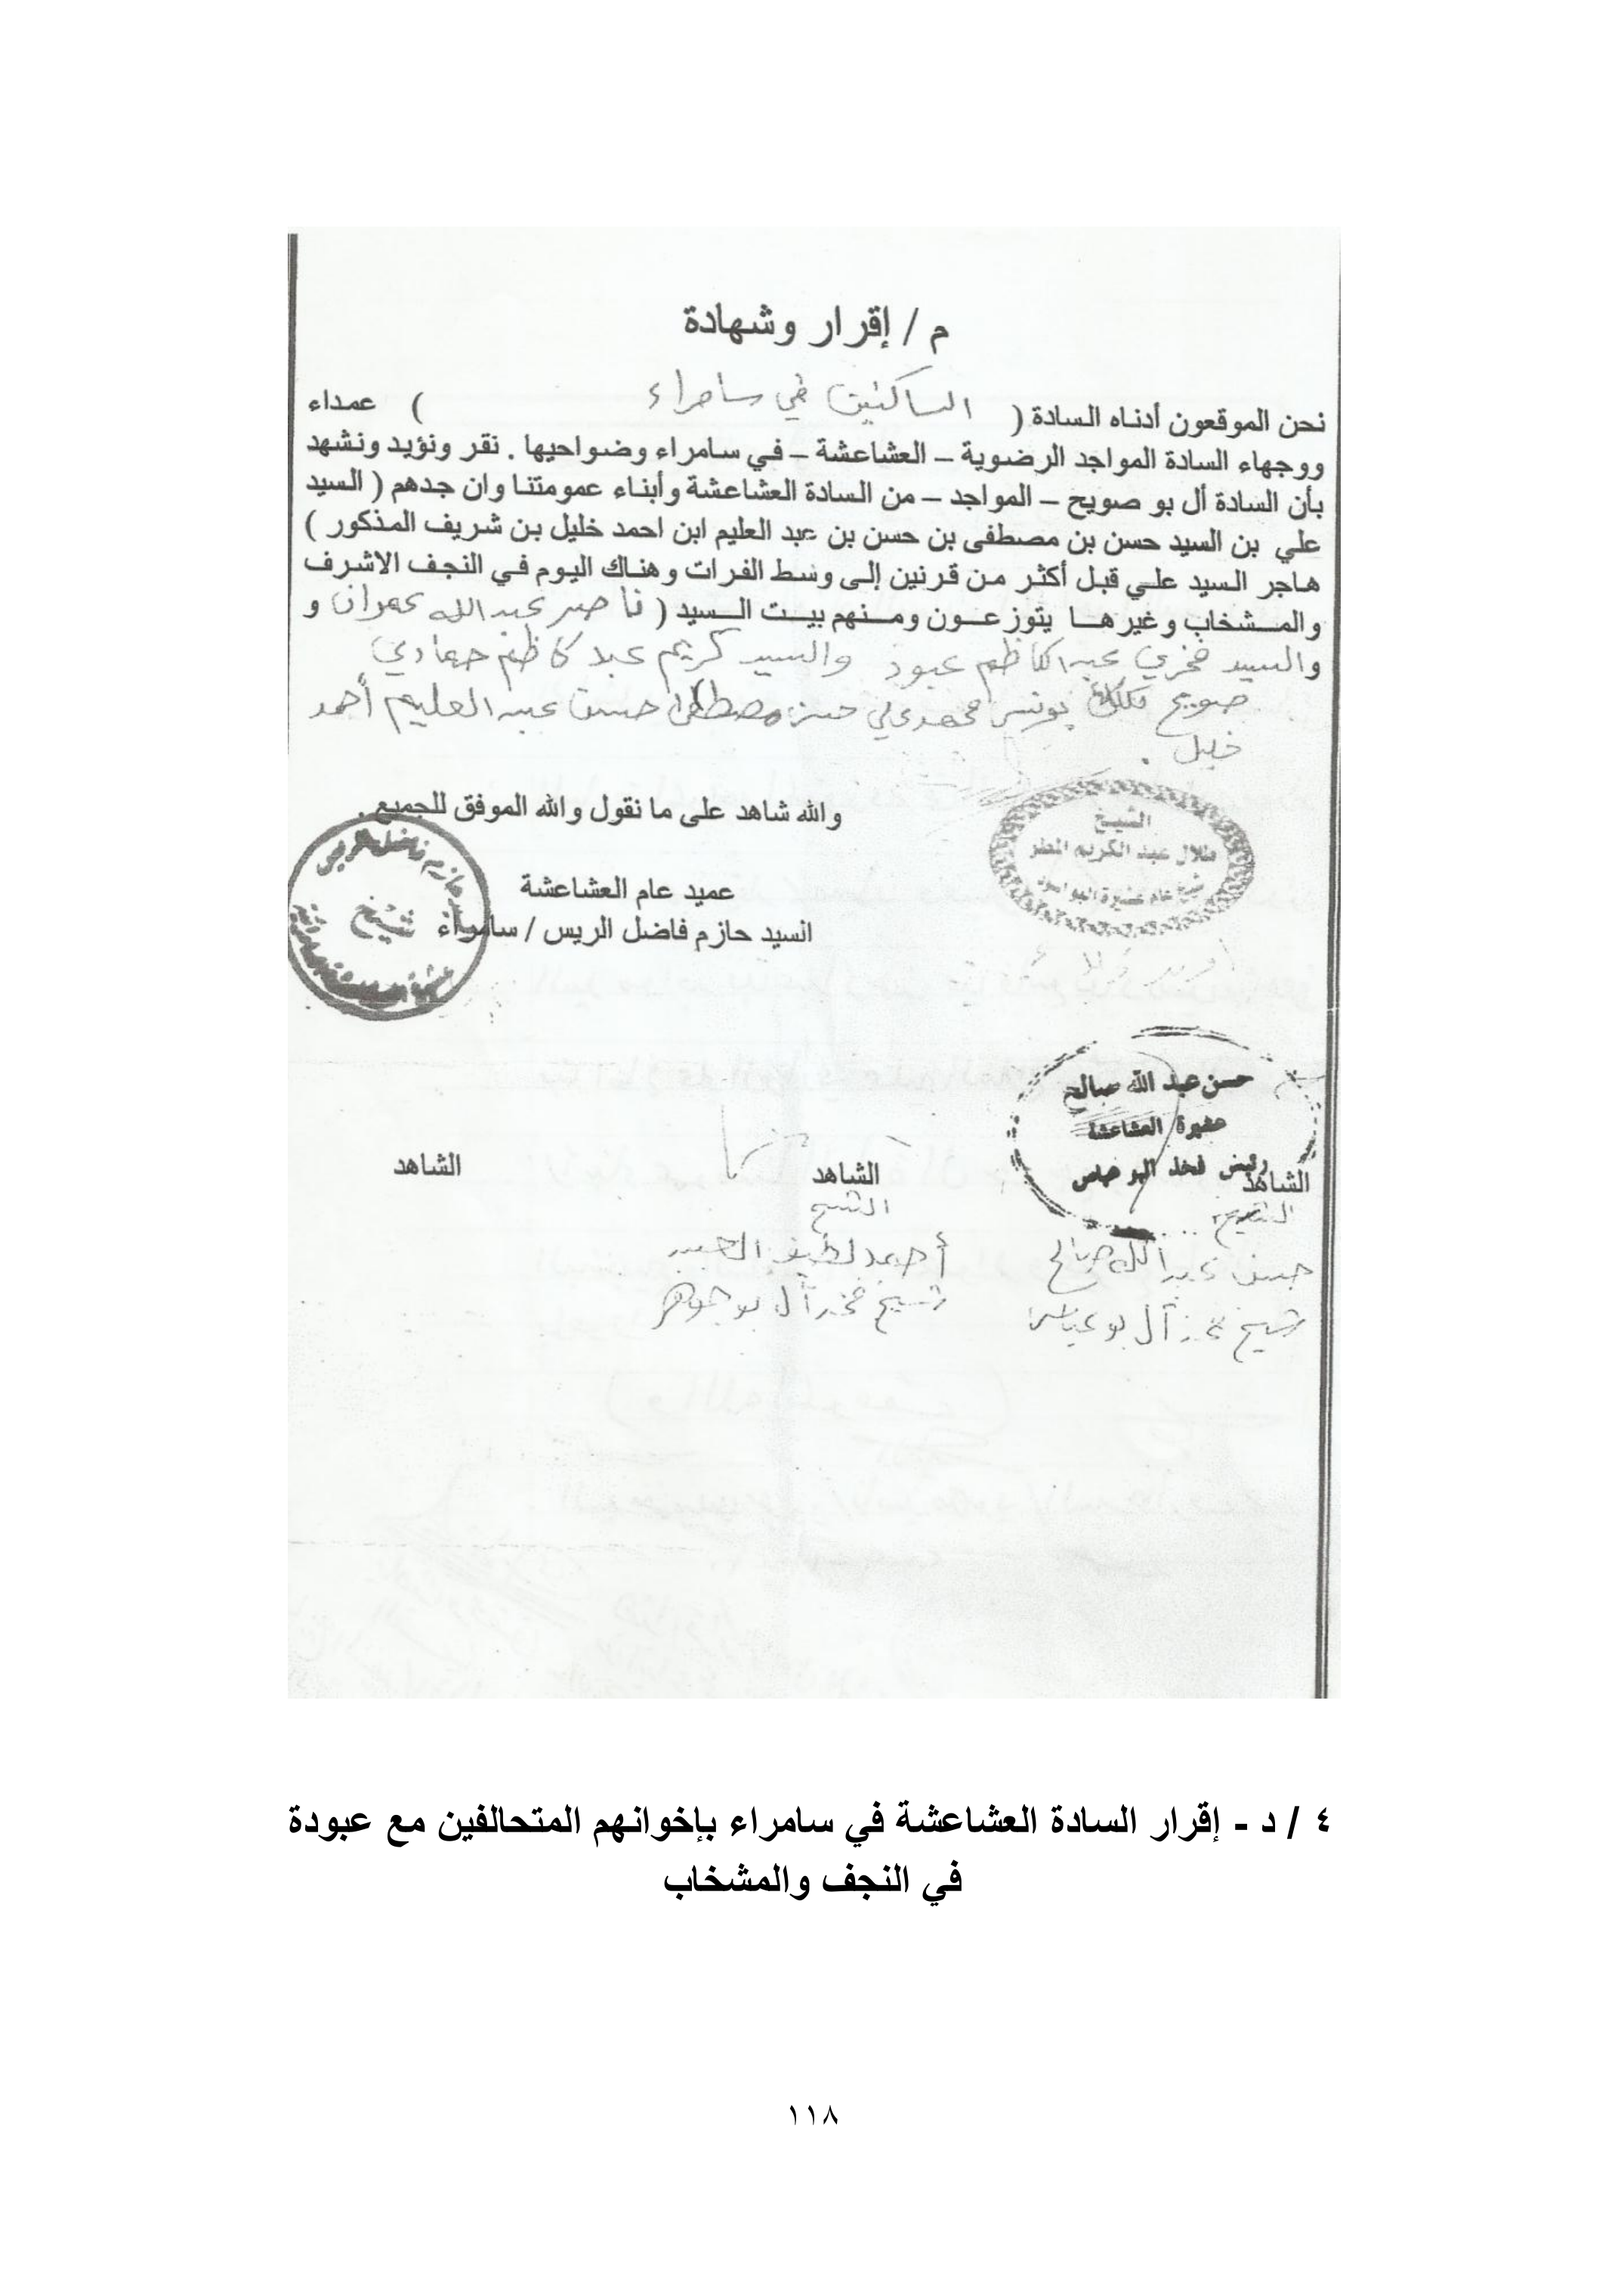 م / إقرار وشهادة
نحن الموقعون أدناه السادة ( الساكنين في سامراء ) عمداء
ووجهاء السادة المواجد الرضوية – العشاعشة – في سامراء وضواحيها . نقر ونؤيد ونشهد
بأن السادة أل بو صويح – المواجد – من السادة العشاعشة وأبناء عمومتنا وان جدهم ( السيد
علي بن السيد حسن بن مصطفى بن حسن بن عبد العليم ابن احمد خليل بن شريف المذكور )
هاجر السيد علي قبل أكثر من قرنين إلى وسط الفرات وهناك اليوم في النجف الاشرف
والمشخاب وغيرها يتوزعون ومنهم بيت السيد ( ناصر عبد الله عمران و
والسيد فخري عبد الكاظم عبود والسيد كريم عبد كاظم حمادي
صويح يونس محمد علي حسن مصطفى حسن عبد العليم أحمد
خليل .
والله شاهد على ما نقول والله الموفق للجميع .
الشيخ
طلال عبد الكريم المطر
شيخ عام عشيرة البواسود
عميد عام العشاعشة
السيد حازم فاضل الريس / سامراء
شيخ
حسن عبد الله صالح
عشيرة العشاعشة
رئيس فخذ البو عباس
الشاهد
الشاهد
الشاهد
الشيخ
الشيخ
حسن عبد الله صالح
أحمد لطيف
شيخ فخذ آل بو عباس
شيخ فخذ آل بو جوهر
٤ / د - إقرار السادة العشاعشة في سامراء بإخوانهم المتحالفين مع عبودة
في النجف والمشخاب
١١٨